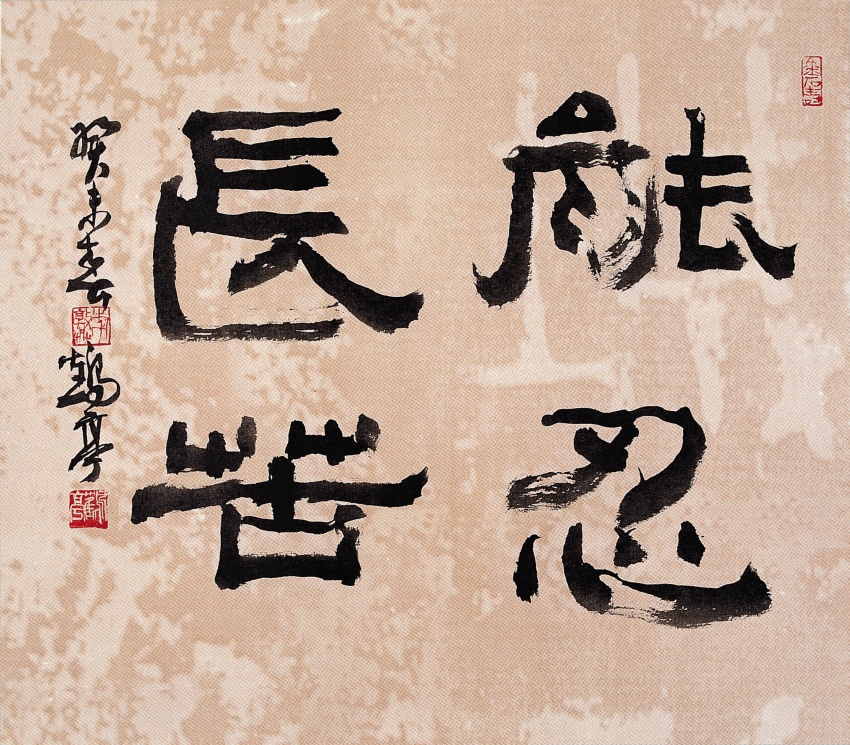 能忍
長苦
癸未春
鶴亭